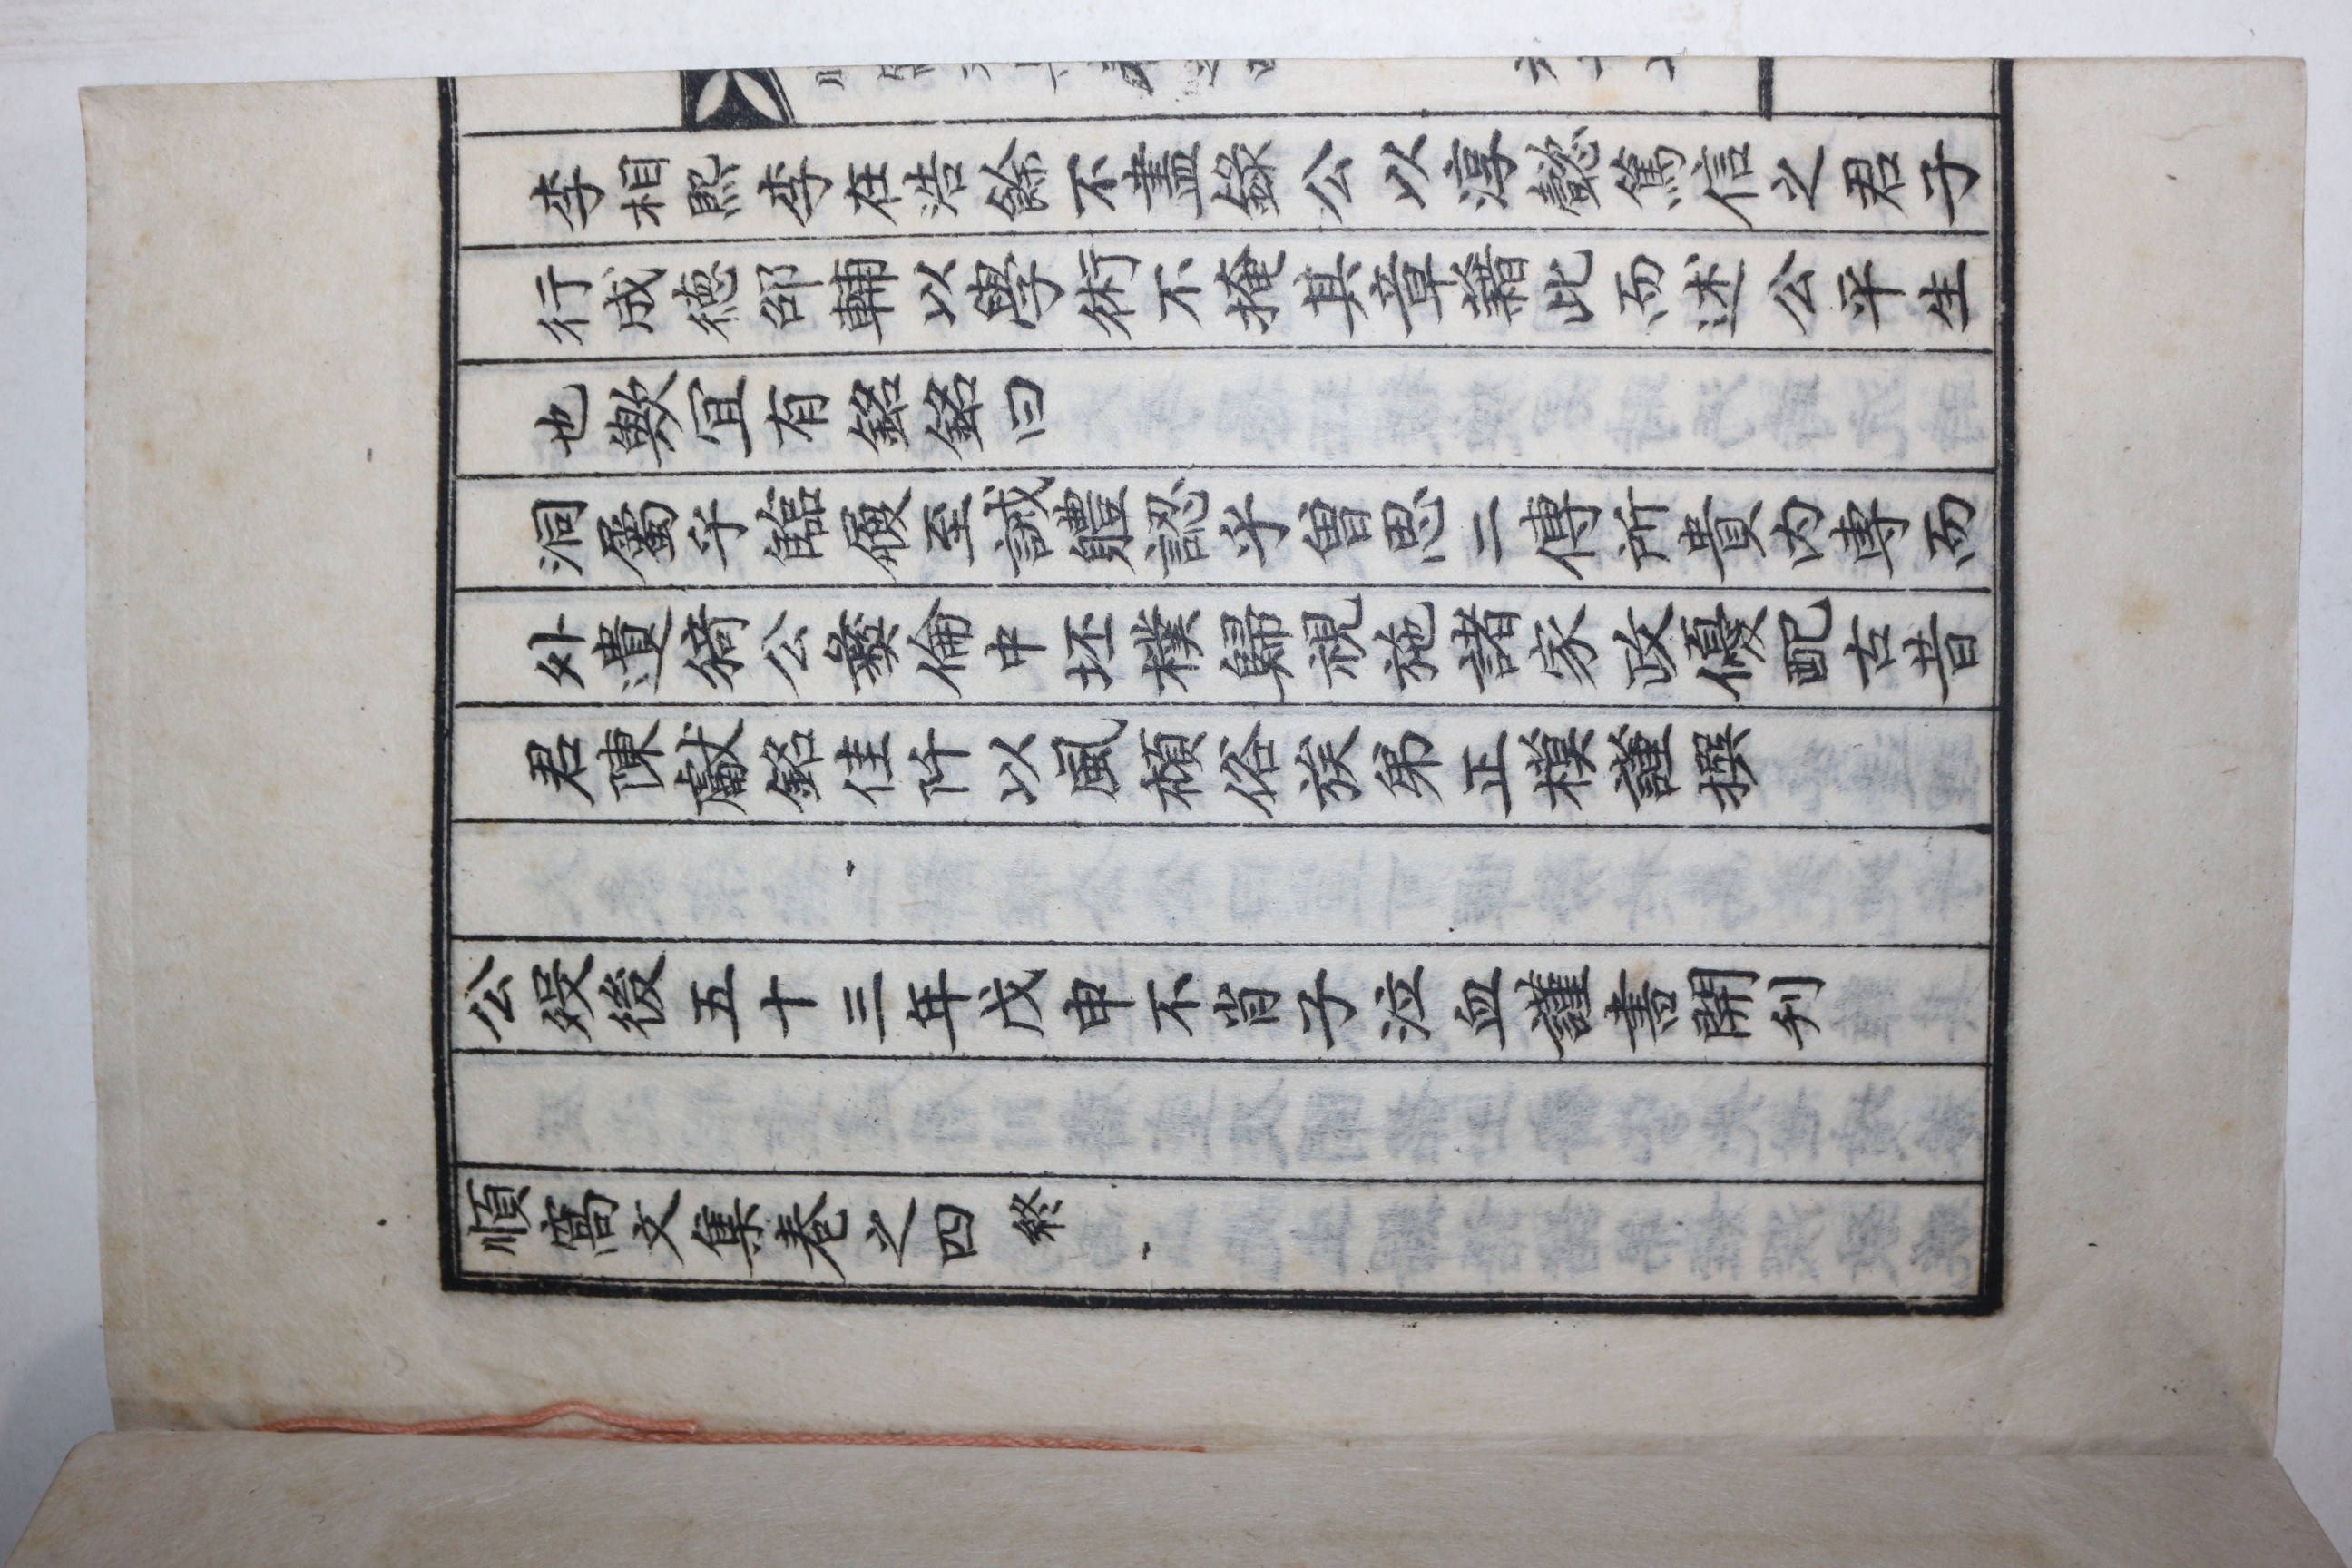 李相熙李在浩餘不盡錄公以淳懿篤信之君子
行成德邵輔以學術不掩其章藉此而述公平生
也歟宜有銘銘曰
洞屬乎臨履至誠軆認乎曾思二傳所貴內専而
外遺猗公彝倫中坯樸歸視施諸家政優配古昔
君陳獻銘佳阡以風頹俗族弟正模謹撰
公歿後五十三年戊申不肖子泣血謹書開刋
順窩文集卷之四 終